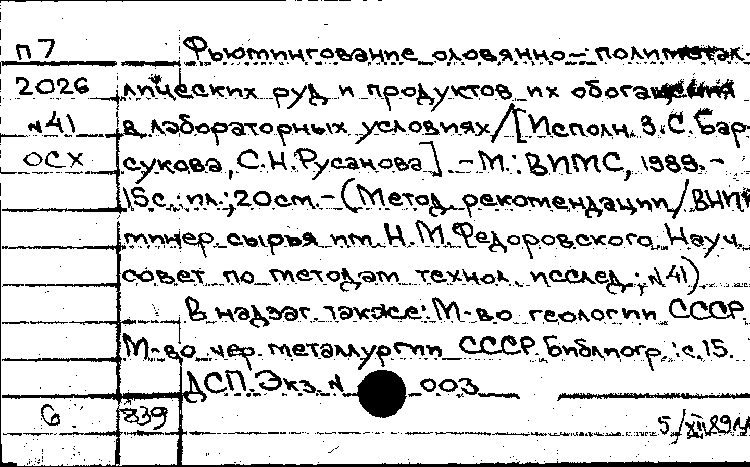 П7
2026
№41
ОСХ
Фьютингование оловянно-полиметал-
лических руд и продуктов их обогащения
в лабораторных условиях/[Исполн. З.С.Бар-
сукова, С.Н.Русанова]. - М.: ВИМС, 1989. -
15с.: ил.; 20см. - (Метод. рекомендации/ВНИИ
минер. сырья им. Н.М.Федоровского. Науч.
совет по методам технол. исслед.; №41)
В надзаг. также: М-во геологии СССР,
М-во чер. металлургии СССР. Библиогр.: с.15.
ДСП. Экз. № 003
6 839
5/XII 89